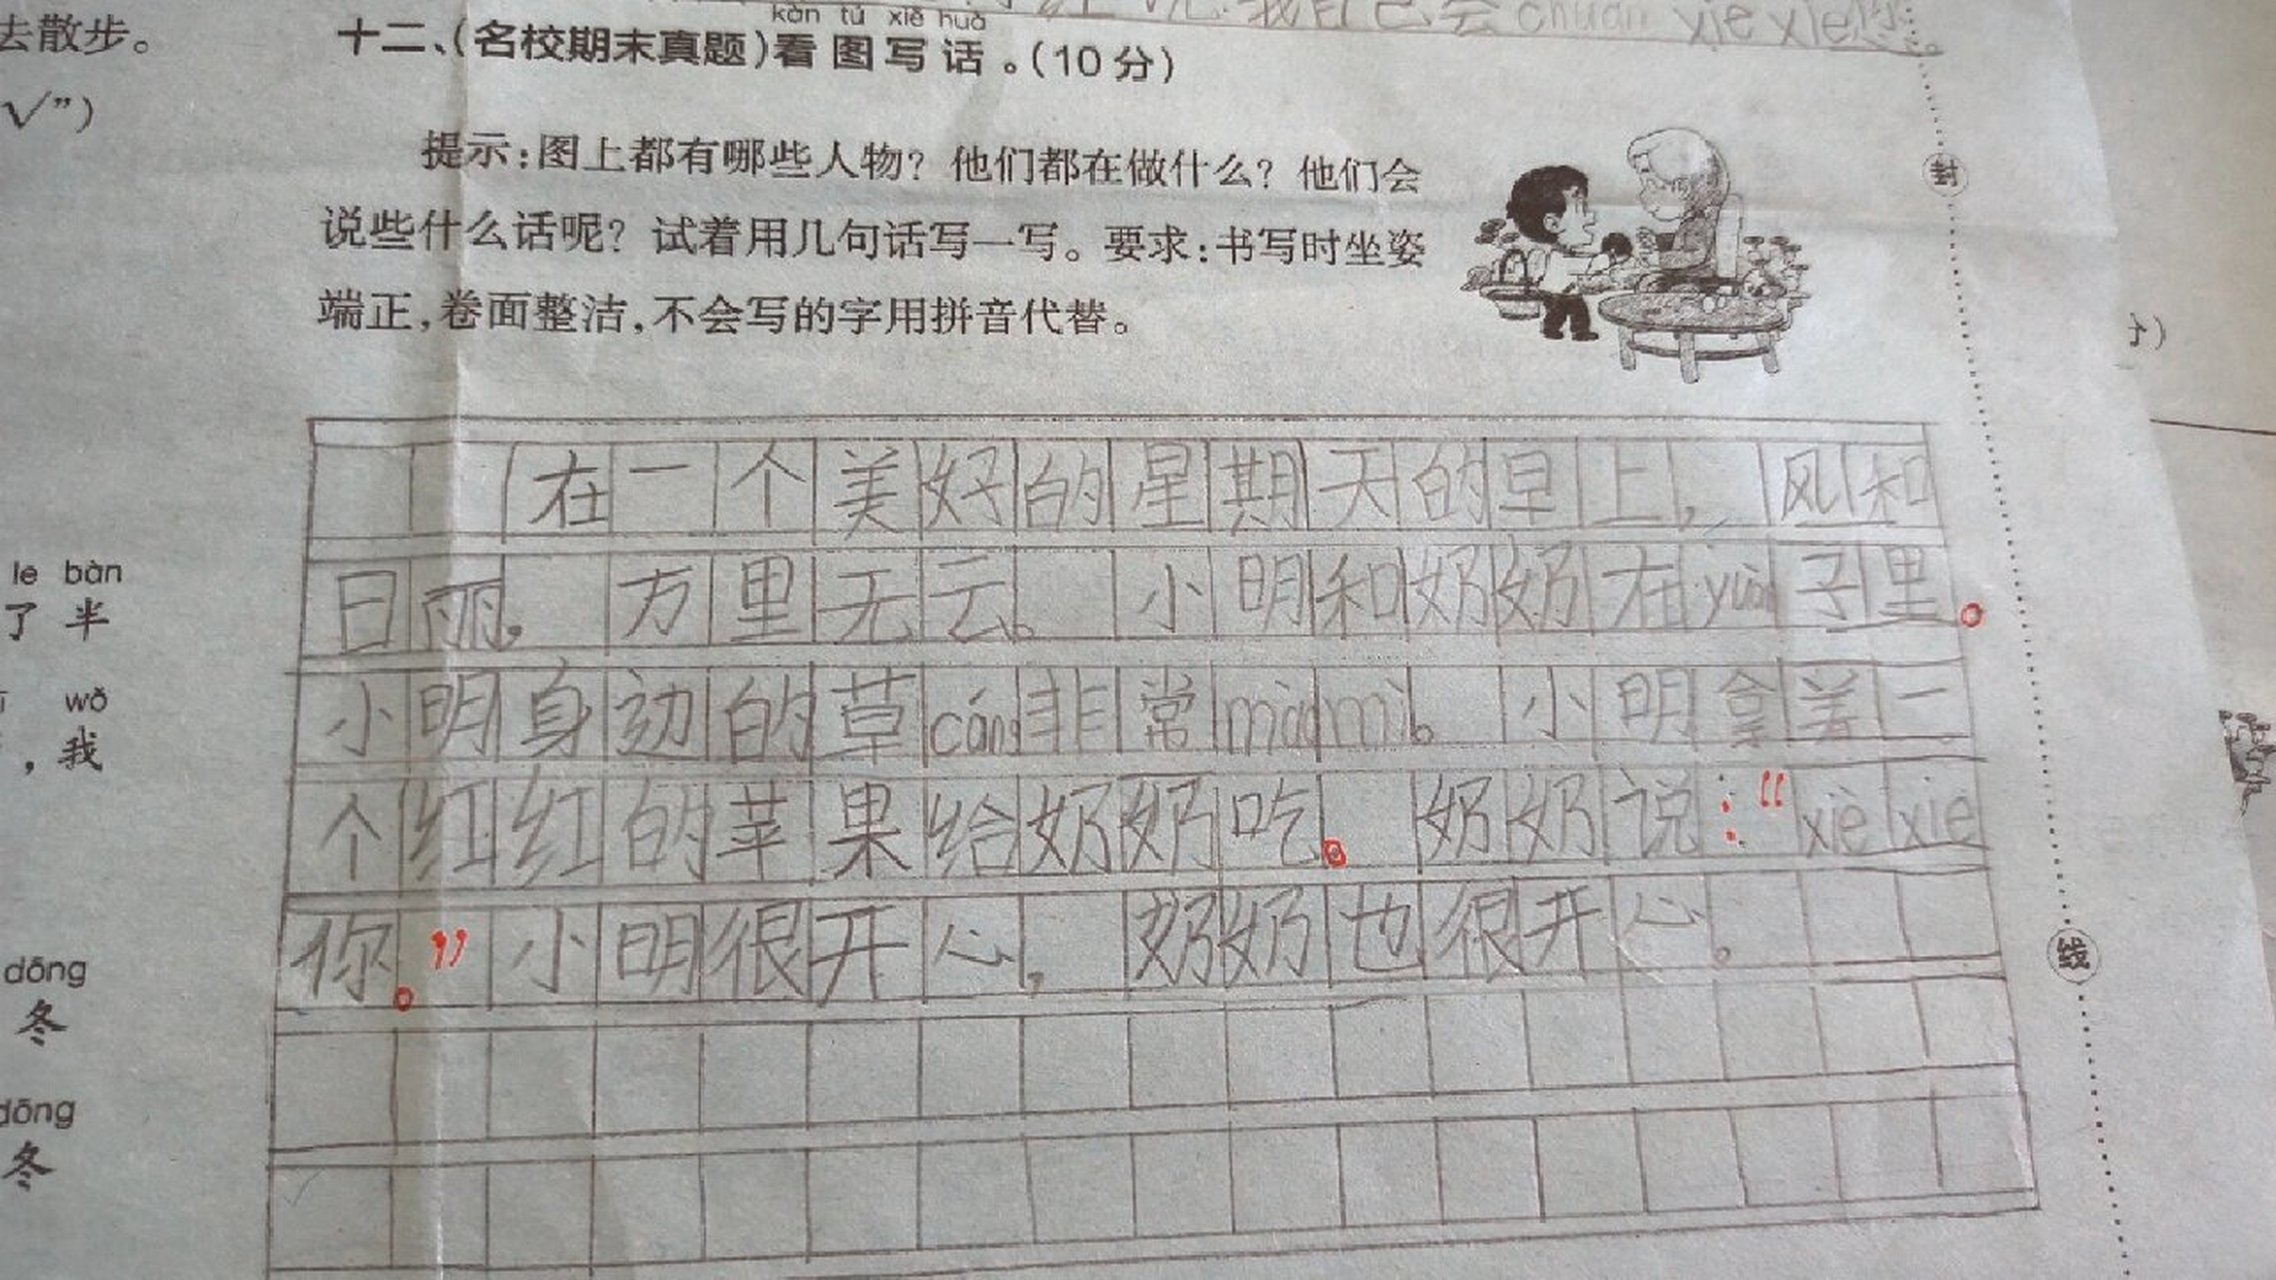 去散步。
√”)
chuan xie xie
kàn tú xiě huà
十二、(名校期末真题)看图写话。(10分)
提示:图上都有哪些人物？他们都在做什么？他们会
说些什么话呢？试着用几句话写一写。要求:书写时坐姿
端正,卷面整洁,不会写的字用拼音代替。
封
在一个美好的星期天的早上，风和
日丽，万里无云。小明和奶奶在yuàn子里。
小明身边的草cóng非常mào mì。小明拿着一
个红红的苹果给奶奶吃。奶奶说：“xiè xie
你。”小明很开心，奶奶也很开心。
线
le bàn
了 半
wǒ
，我
dōng
冬
dōng
冬